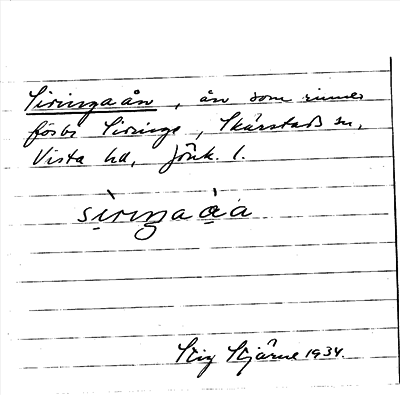 Siringaån, ån som rinner
förbi Siringe, Skärstads sn,
Vista hd, Jönk. l.
sìringa å̀a
Stig Stjärne 1934.